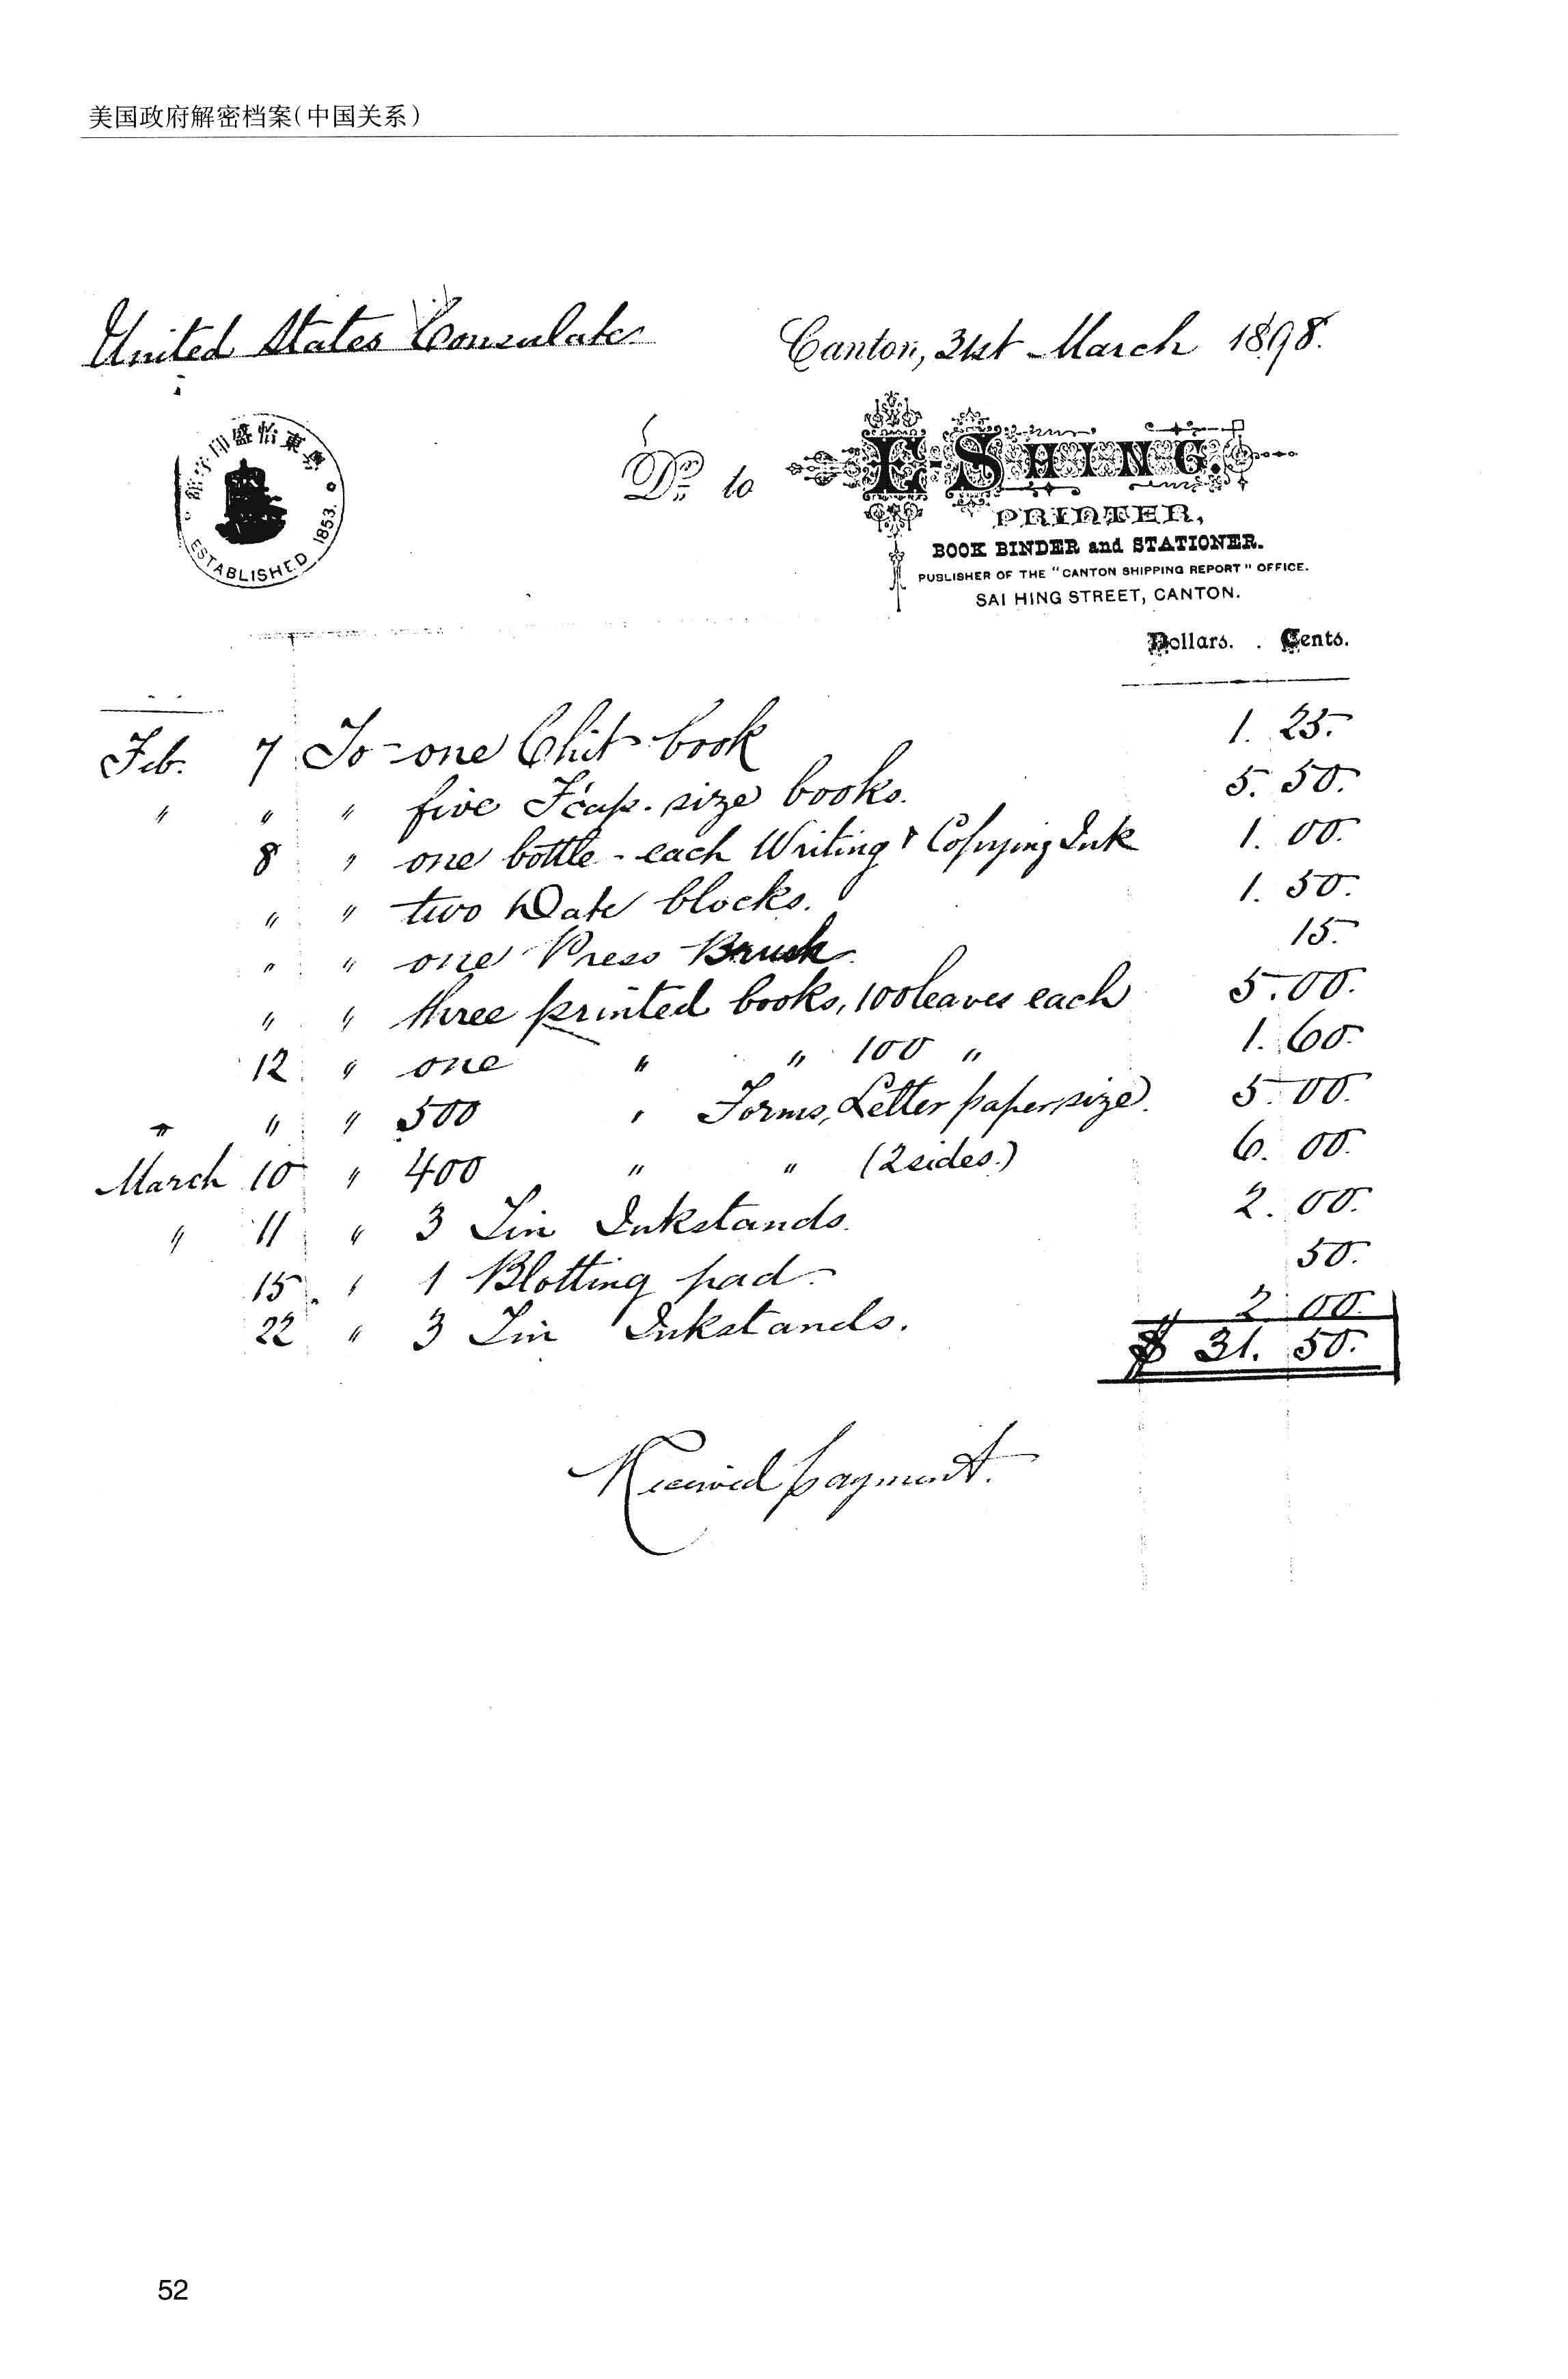 美国政府解密档案(中国关系)
United States Consulate
Canton, 31st March 1898.
粤東怡盛印字館
ESTABLISHED 1853.
Dr. to E-SHING.
PRINTER,
BOOK BINDER and STATIONER.
PUBLISHER OF THE "CANTON SHIPPING REPORT" OFFICE.
SAI HING STREET, CANTON.
Dollars. Cents.
Feb. 7 To one Chit book 1. 25.
" " " five F'cap. size books. 5. 50.
8 " one bottle each Writing & Copying Ink 1. 00.
" " two Date blocks. 1. 50.
" " one Press Brush 15.
" " three printed books, 100 leaves each 5. 00.
12 " one " " 100 " 1. 60.
" " " 500 " Forms, Letter paper size. 5. 00.
March 10 " 400 " " (2 sides.) 6. 00.
" 11 " 3 Tin Inkstands. 2. 00.
15 " 1 Blotting pad 50.
22 " 3 Tin Inkstands. 2 00.
$ 31. 50.
Received payment.
52